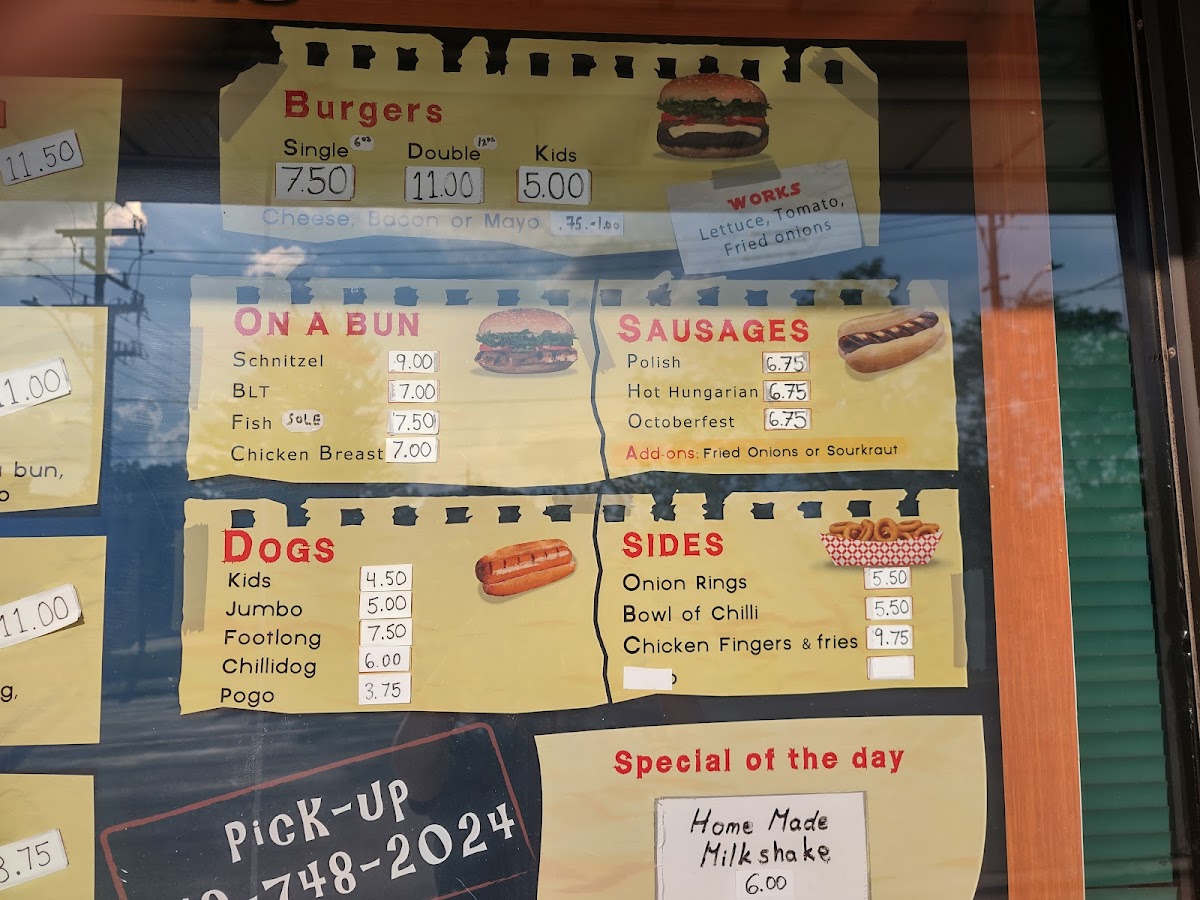 11.50
Burgers
Single 6oz Double 12oz Kids
7.50 11.00 5.00
Cheese, Bacon or Mayo .75.-1.00
WORKS
Lettuce, Tomato,
Fried onions
1.00
bun,
11.00
g,
3.75
ON A BUN
Schnitzel 9.00
BLT 7.00
Fish SOLE 7.50
Chicken Breast 7.00
SAUSAGES
Polish 6.75
Hot Hungarian 6.75
Octoberfest 6.75
Add-ons: Fried Onions or Sourkraut
DOGS
Kids 4.50
Jumbo 5.00
Footlong 7.50
Chillidog 6.00
Pogo 3.75
SIDES
Onion Rings 5.50
Bowl of Chilli 5.50
Chicken Fingers & fries 9.75
PiCK-UP
-748-2024
Special of the day
Home Made
Milkshake
6.00